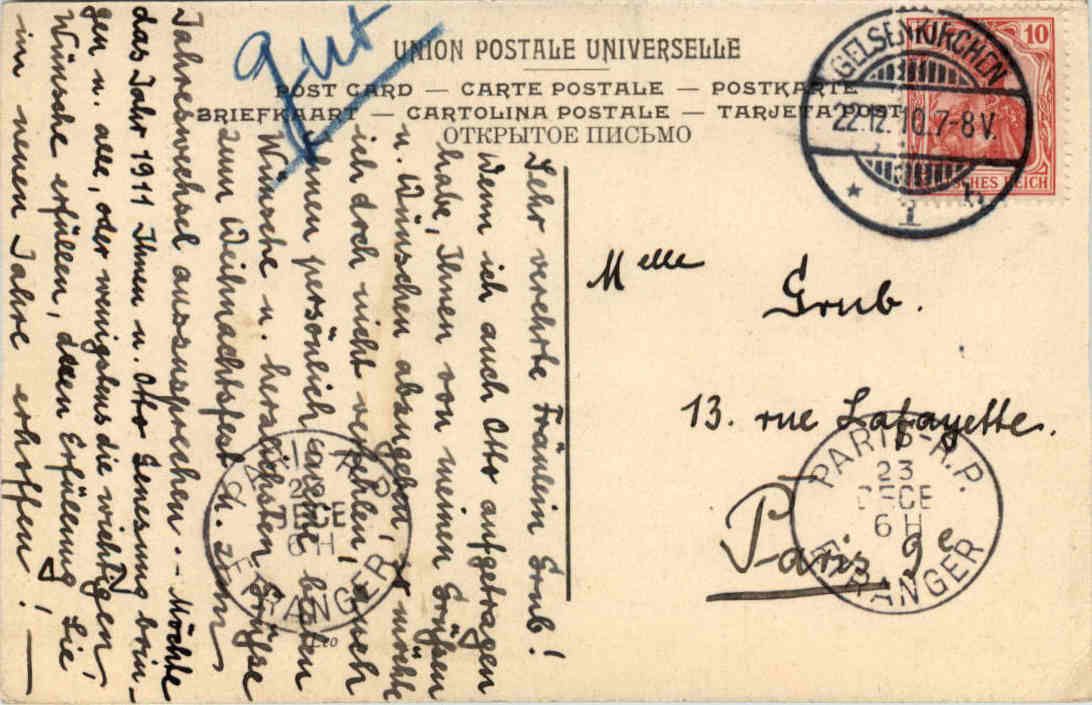 gut
UNION POSTALE UNIVERSELLE
POST CARD — CARTE POSTALE — POSTKARTE
BRIEFKAART — CARTOLINA POSTALE — TARJETA POST
ОТКРЫТОЕ ПИСЬМО
GELSENKIRCHEN
22.12.10.7-8V.
* 1 h
10
DEUTSCHES REICH
Melle
Grub.
13. rue Lafayette.
Paris 9e
PARIS-R.P.
23
DECE
6H
ETRANGER
Sehr verehrte Fräulein Grub!
Wenn ich auch Otto aufgetragen
habe, Ihnen von meinen Grüßen
u. Wünschen abzugeben, so möchte
ich doch nicht verfehlen, auch
Ihnen persönlich meine besten
Wünsche u. herzlichsten Grüsse
zum Weihnachtsfest u. zum
Jahreswechsel auszusprechen. - Möchte
das Jahr 1911 Ihnen u. Otto Genesung brin-
gen u. alle, oder wenigstens die wichtigen
Wünsche erfüllen, deren Erfüllung Sie
im neuen Jahre erhoffen! —
PARIS R.P.
23
DECE
6H
ETRANGER
Leo